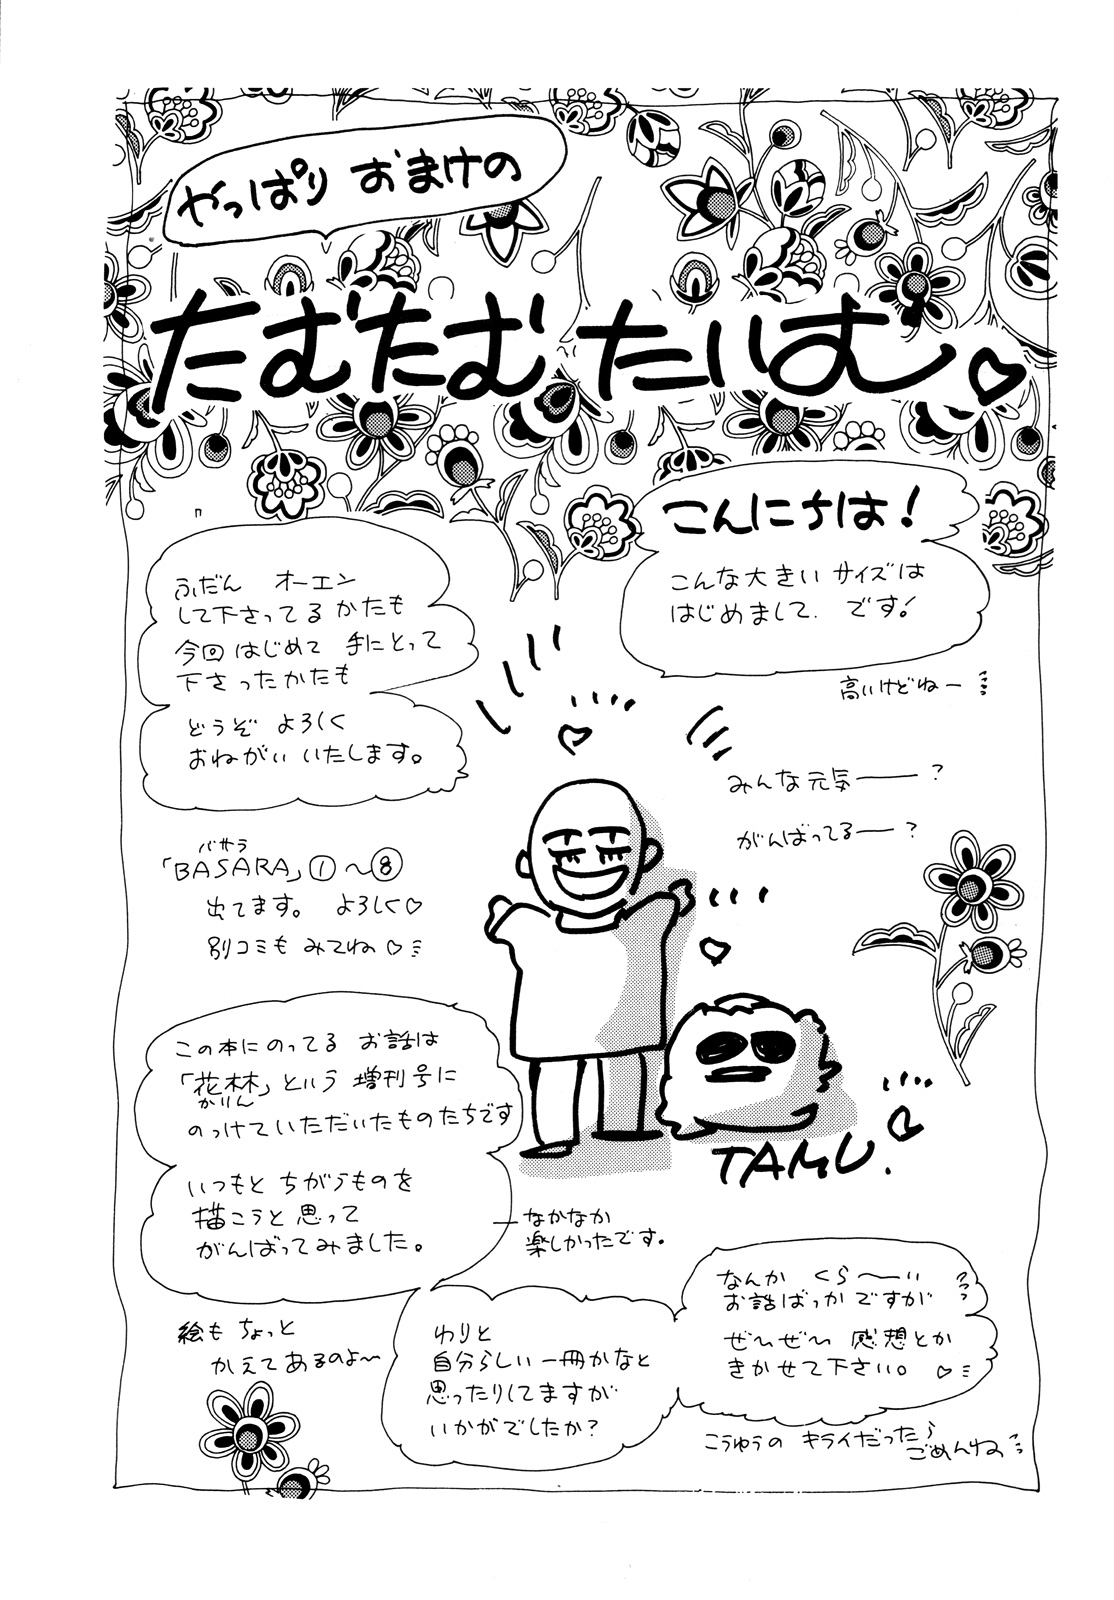 やっぱり おまけの
たむたむたいむ♡
こんにちは！
こんな大きい サイズは
はじめまして. です!
高いけどねー
ふだん オーエン
して下さってるかたも
今回はじめて 手にとって
下さったかたも
どうぞ よろしく
おねがい いたします。
みんな元気――?
がんばってる――?
バサラ
「BASARA」①～⑧
出てます。 よろしく♡
別コミも みてね♡
この本にのってる お話は
「花林」という 増刊号に
かりん
のっけていただいたものたちです
いつもと ちがうものを
描こうと思って
がんばってみました。
なかなか
楽しかったです。
TAMU.
絵も ちょっと
かえてあるのよ～
わりと
自分らしい一冊かなと
思ったりしてますが
いかがでしたか?
なんか くら～い
お話ばっかですが
ぜ～ぜ～ 感想とか
きかせて下さい。♡
こうゆうの キライだったら
ごめんね